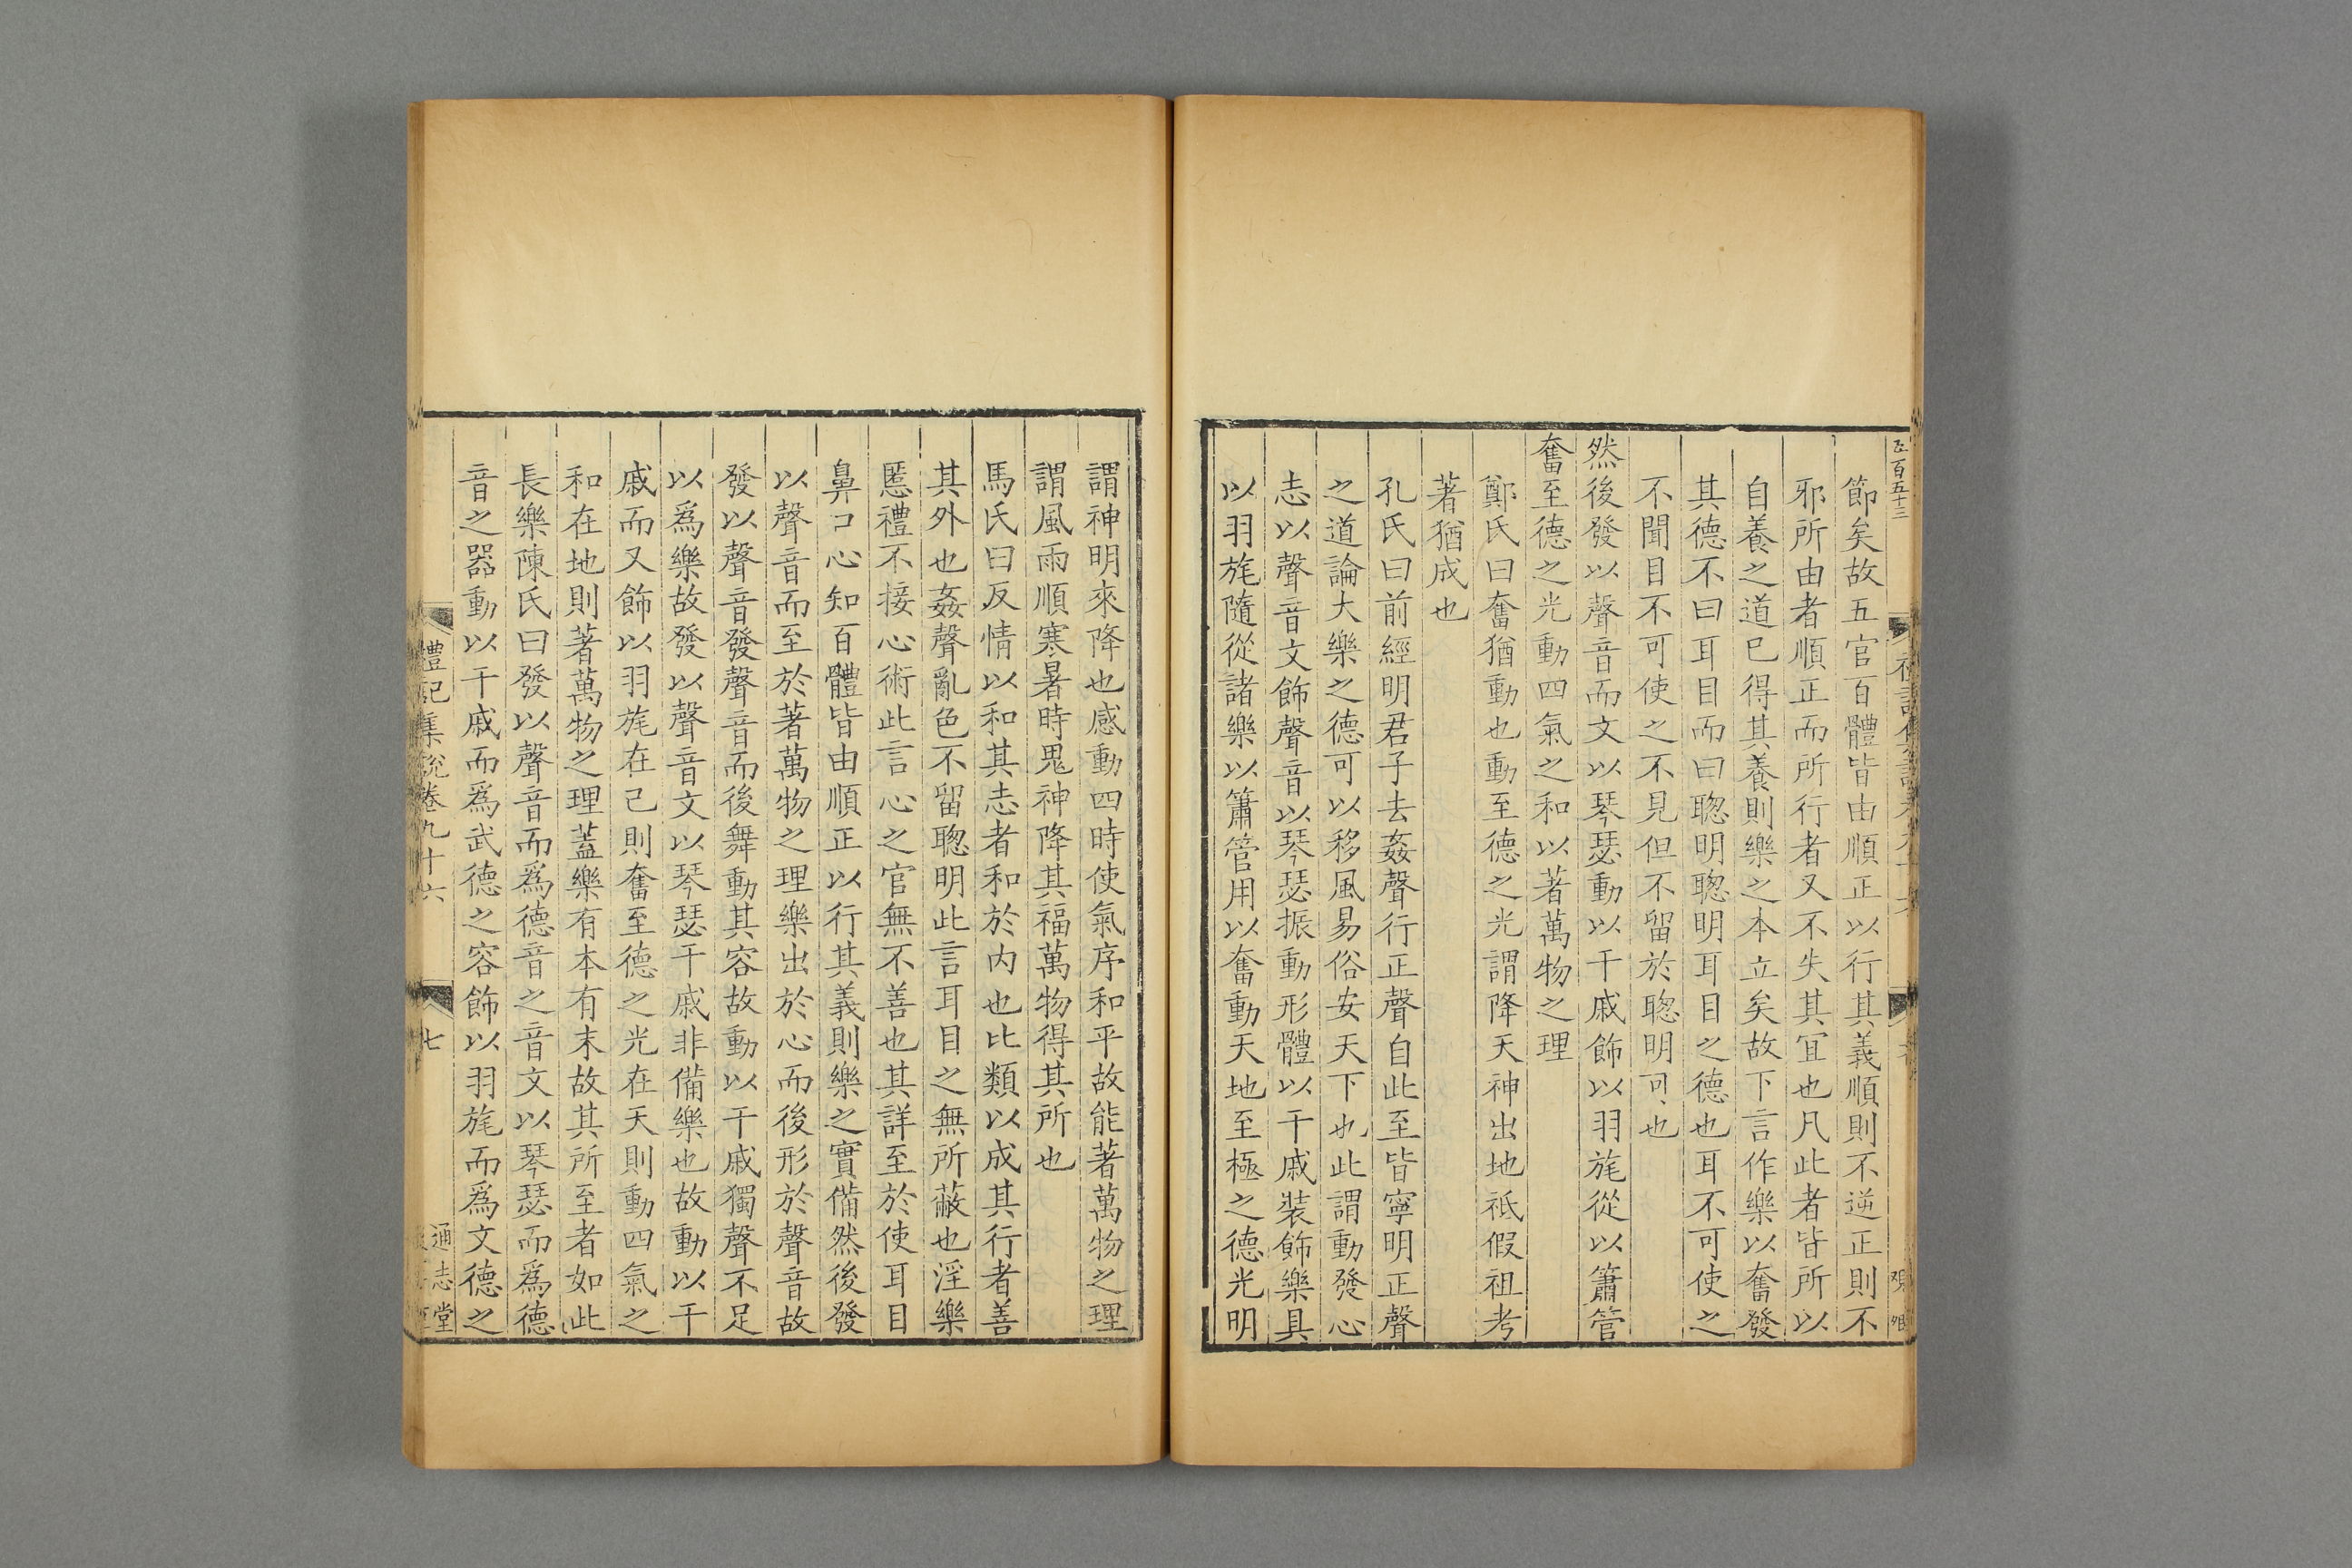 節矣故五官百體皆由順正以行其義順則不逆正則不
邪所由者順正而所行者又不失其宜也凡此者皆所以
自養之道已得其養則樂之本立矣故下言作樂以奮發
其德不曰耳目而曰聦明聦明耳目之德也耳不可使之
不聞目不可使之不見但不留於聦明可也
然後發以聲音而文以琴瑟動以干戚飾以羽旄從以簫管
奮至德之光動四氣之和以著萬物之理
鄭氏曰奮猶動也動至德之光謂降天神出地祇假祖考
著猶成也
孔氏曰前經明君子去姦聲行正聲自此至皆寧明正聲
之道論大樂之德可以移風易俗安天下也此謂動發心
志以聲音文飾聲音以琴瑟振動形體以干戚裝飾樂具
以羽旄隨從諸樂以簫管用以奮動天地至極之德光明
謂神明來降也感動四時使氣序和平故能著萬物之理
謂風雨順寒暑時鬼神降其福萬物得其所也
馬氏曰反情以和其志者和於内也比類以成其行者善
其外也姦聲亂色不留聦明此言耳目之無所蔽也淫樂
慝禮不接心術此言心之官無不善也其詳至於使耳目
鼻口心知百體皆由順正以行其義則樂之實備然後發
以聲音而至於著萬物之理樂出於心而後形於聲音故
發以聲音發聲音而後舞動其容故動以干戚獨聲不足
以爲樂故發以聲音文以琴瑟干戚非備樂也故動以干
戚而又飾以羽旄在己則奮至德之光在天則動四氣之
和在地則著萬物之理蓋樂有本有末故其所至者如此
長樂陳氏曰發以聲音而爲德音之音文以琴瑟而爲德
音之器動以干戚而爲武德之容飾以羽旄而爲文德之
禮記集說卷九十六
七
通志堂